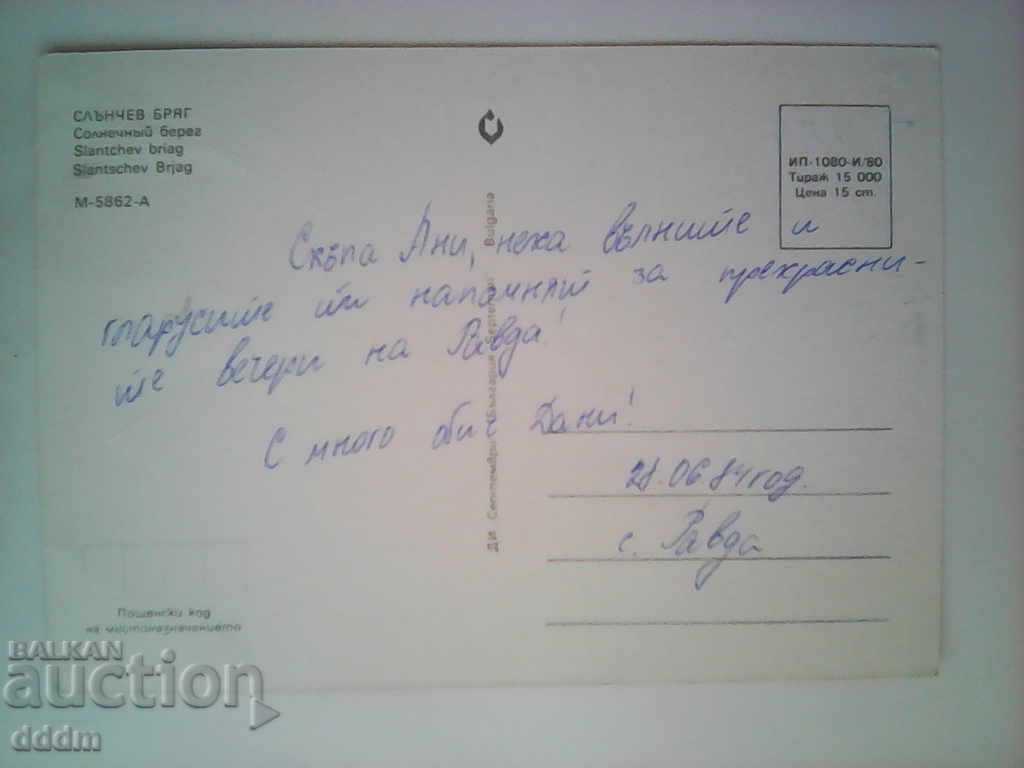 СЛЪНЧЕВ БРЯГ
Солнечный берег
Slantchev briag
Slantschev Brjag
М-5862-А
ИП-1080-И/80
Тираж 15 000
Цена 15 ст.
Скъпа Ани, нека вълните и
гларусите ти напомнят за прекрасни-
те вечери на Равда!
С много обич Дани!
28.06.84 год.
с. Равда
ДИ Септември България Bulgaria
Пощенски код
на местоназначението
BALKAN
auction
dddm